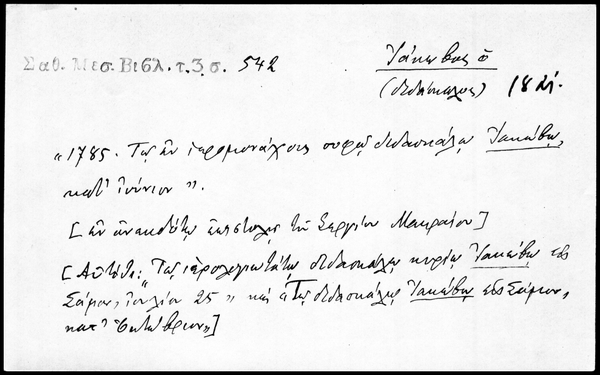 Σαθ. Μεσ. Βιβλ. τ. 3 σ. 542
Ἰάκωβος ὁ
(διδάσκαλος) 18
"1785. Τῷ ἐν ἱερομονάχοις σοφῷ διδασκάλῳ Ἰακώβῳ,
κατ' Ἰούνιον".
[ἐν ἀνεκδότῳ ἐπιστολῇ τοῦ Σεργίου Μακραίου]
[Αὐτόθι: "Τῷ ἱερολογιωτάτῳ διδασκάλῳ κυρίῳ Ἰακώβῳ εἰς
Σάμον, Ἰουλίου 25" καὶ "Τῷ διδασκάλῳ Ἰακώβῳ εἰς Σάμον,
κατ' Ὀκτώβριον"]